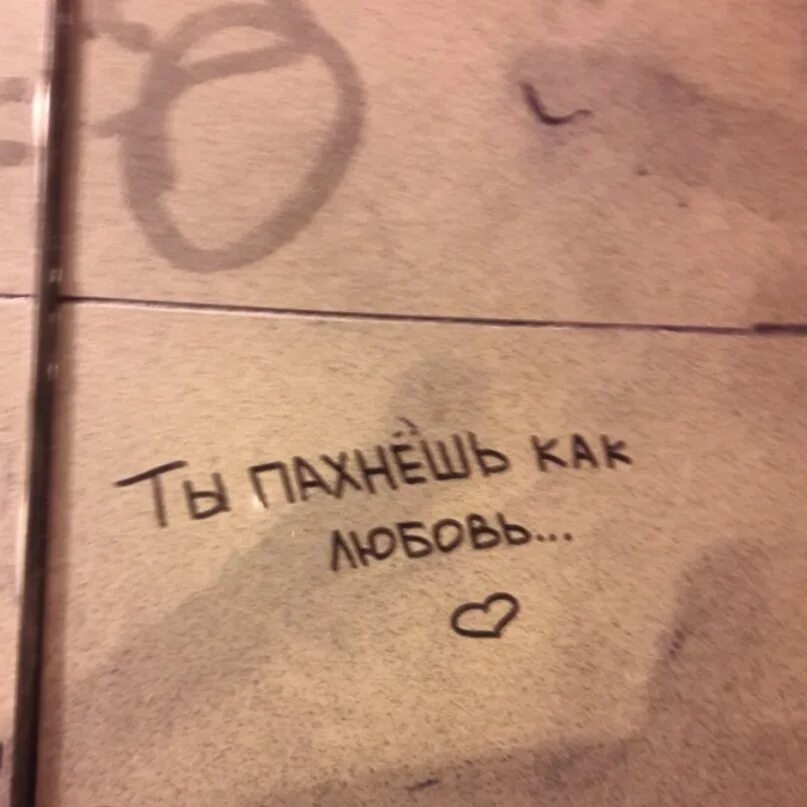 Ты ПАХНЁШЬ КАК
ЛЮБОВЬ...